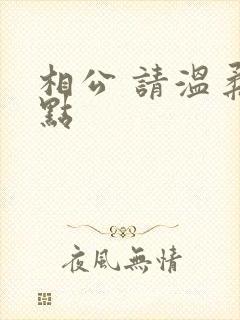 相公 請溫柔
點
夜風無情